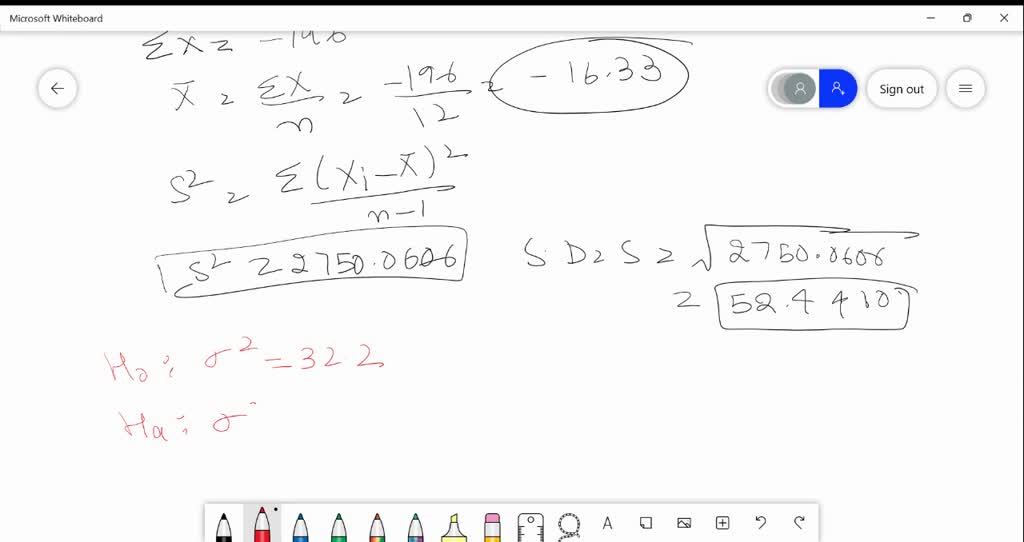 Microsoft Whiteboard
Σx = -196
x̄ = Σx/n = -196/12 = -16.33
Sign out
S² = Σ(xi - x̄)²/n-1
S² = 2750.0606
S.D = S = √2750.0606
= 52.4410
H₀: σ² = 32.2
Hₐ: σ
A